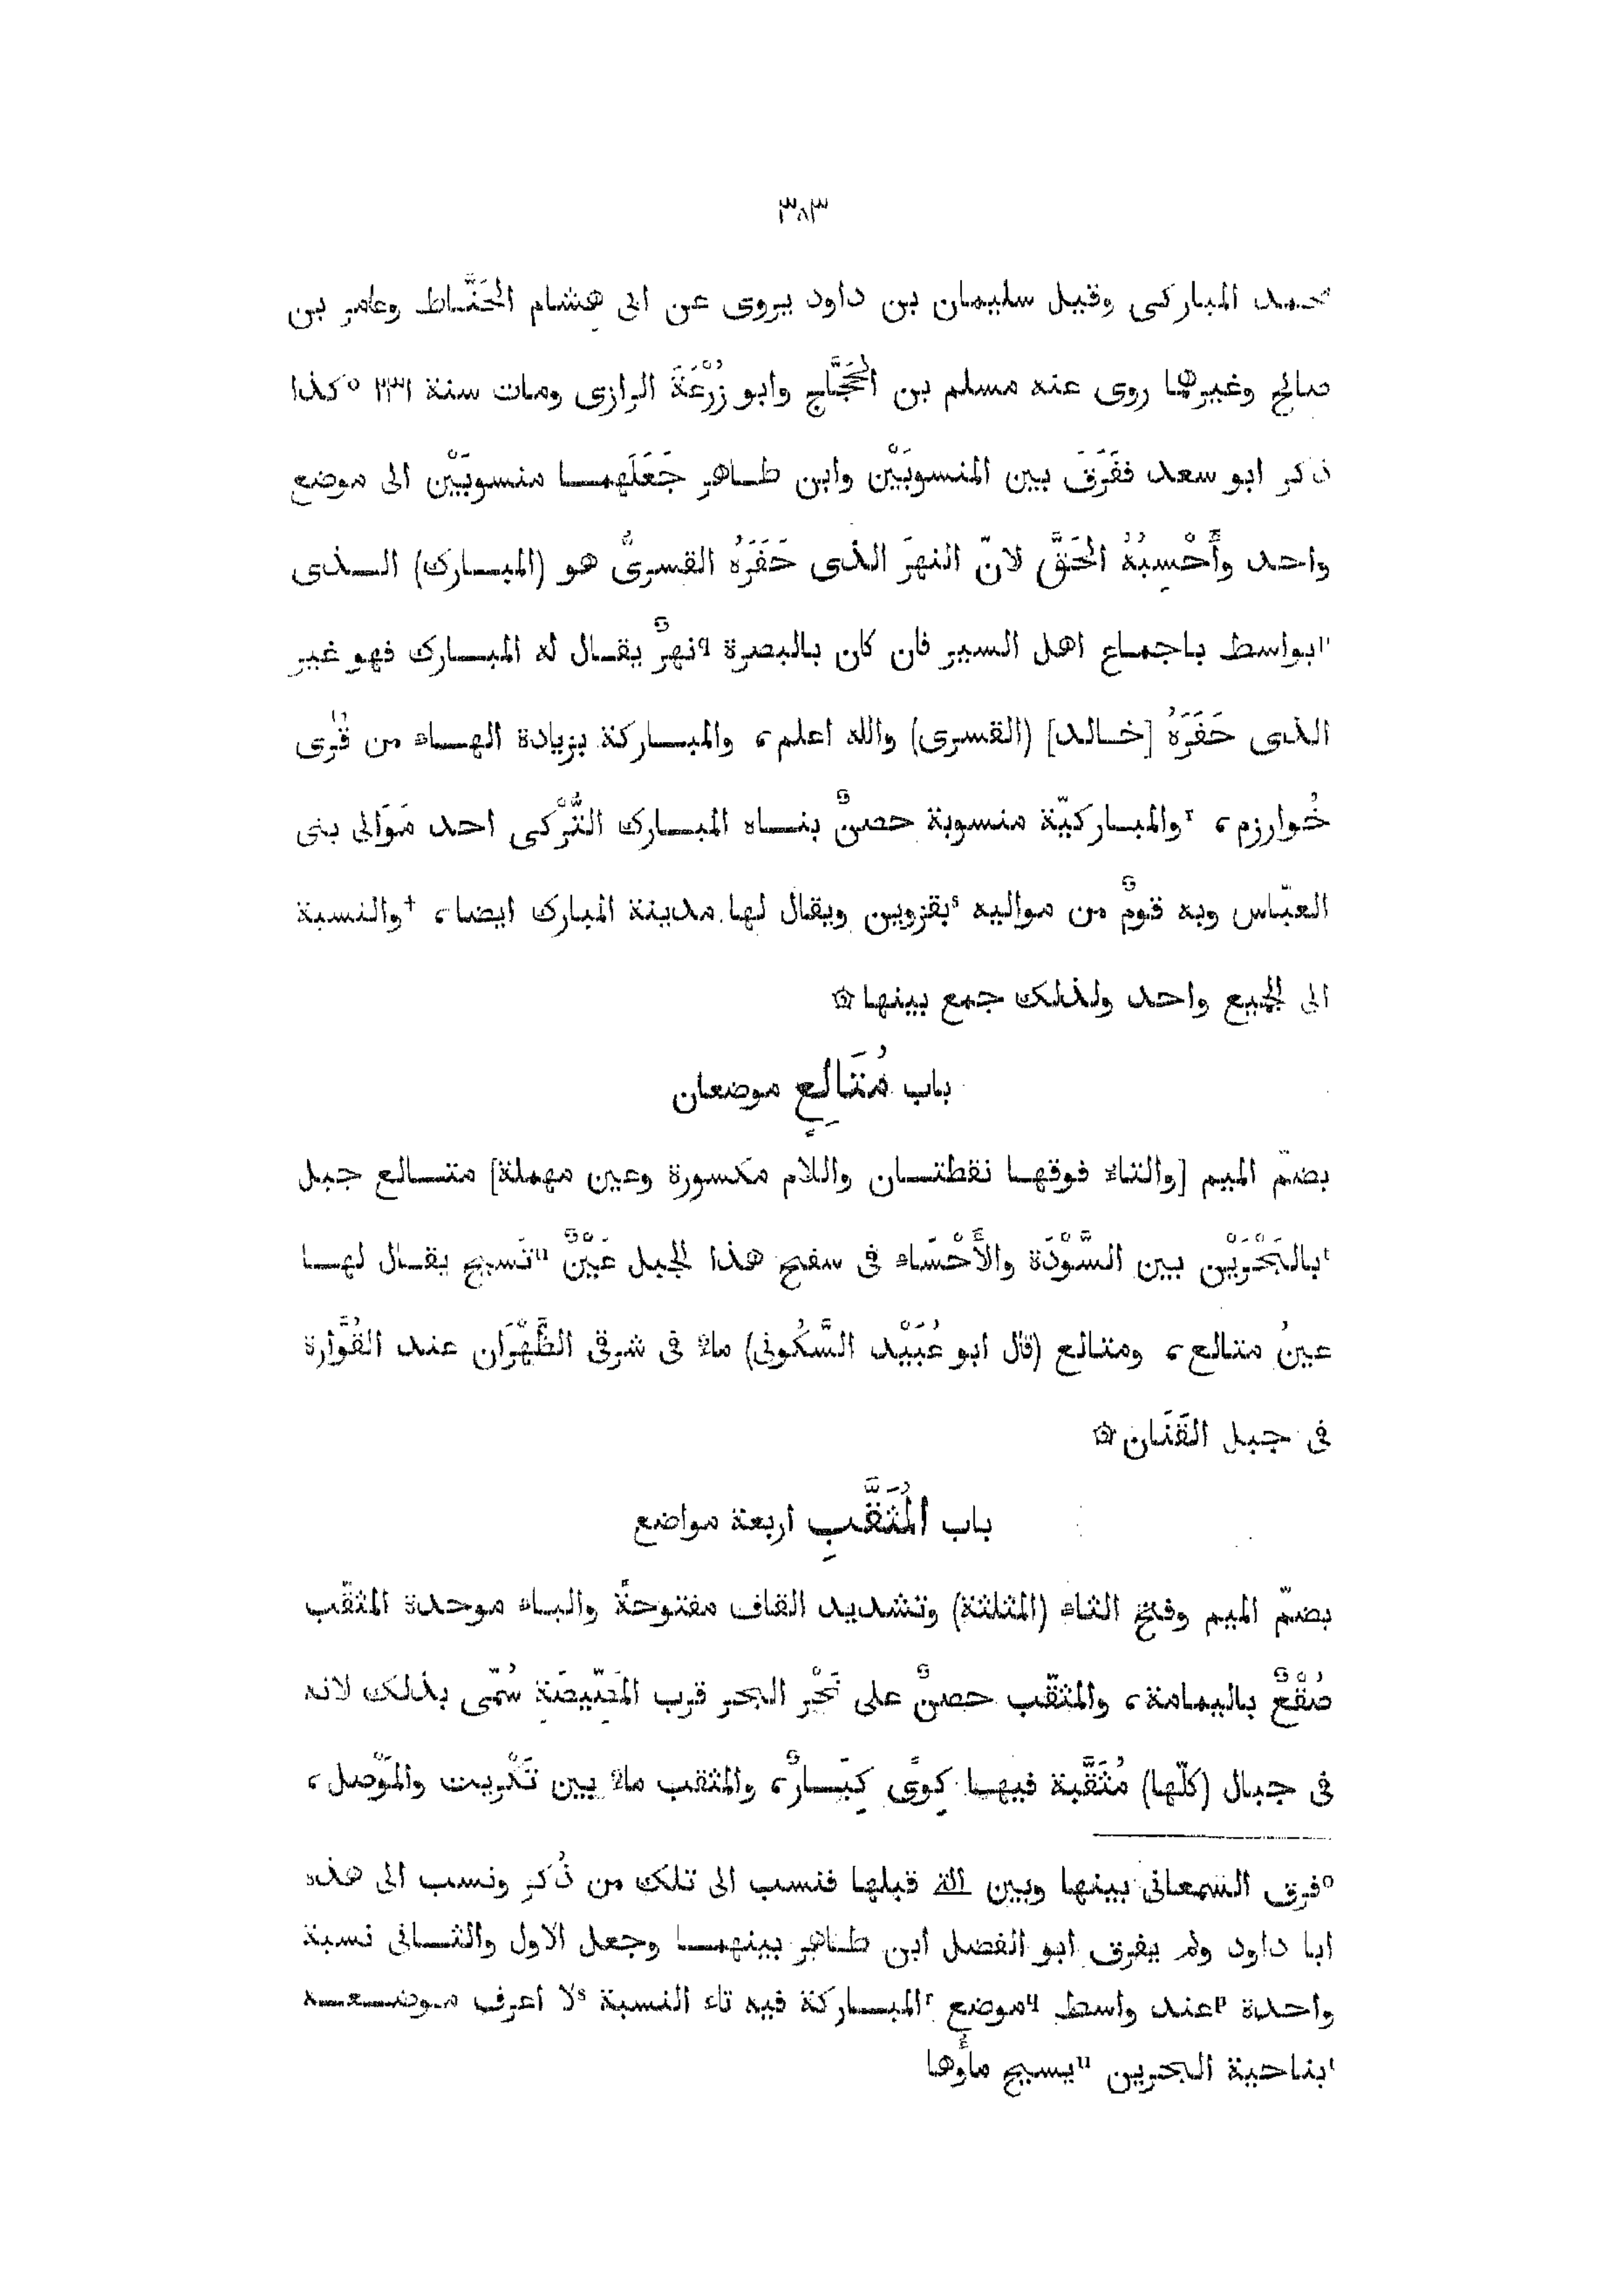 ٣٨٣
محمد المباركى وقيل سليمان بن داود يروى عن ابى هِشام الحَنَّاط وعامر بن
صالح وغيرهما روى عنه مسلم بن الحَجَّاج وابو زُرْعَةَ الرازى ومات سنة ٢٣١ °كذا
ذكر ابو سعد ففَرَقَ بين المنسوبَيْن وابن طاهر جَعَلَهما منسوبَيْن الى موضع
واحد وأَحْسِبُهُ الحَقَّ لانّ النهرَ الذى حَفَرَهُ القسرىُّ هو (المبارك) الذى
ᵖبواسط باجماع اهل السير فان كان بالبصرة ᑫنهرٌ يقال له المبارك فهو غير
الذى حَفَرَهُ [خالد] (القسرى) والله اعلم، والمباركة بزيادة الهاء من قُرى
خُوارزم، ʳوالمباركيّة منسوبة حصنٌ بناه المبارك التُّرْكى احد مَوَالى بنى
العبّاس وبه قومٌ من مواليه ˢبقزوين ويقال لها مدينة المبارك ايضا، †والنسبة
الى الجميع واحد ولذلك جمع بينها۞
باب مُتَالِعٍ موضعان
بضمّ الميم [والتاء فوقها نقطتان واللام مكسورة وعين مهملة] متالع جبل
ᵗبالبَحْرَيْن بين السَّوْدَة والأَحْسَاء فى سفح هذا الجبل عَيْنٌ ᵘتَسيح يقال لها
عينُ متالع، ومتالع (قال ابو عُبَيْد السَّكُونى) ماءٌ فى شرقى الظَّهْرَان عند الفُوَّارة
فى جبل القَنَان۞
باب المُثَقَّبِ اربعة مواضع
بضمّ الميم وفتح الثاء (المثلثة) وتشديد القاف مفتوحةً والباء موحدة المثقّب
صُقْعٌ باليمامة، والمثقّب حصنٌ على نَحْر البحر قرب المَصِّيصَةِ سُمّى بذلك لانه
فى جبال (كلّها) مُثَقَّبة فيها كِوًى كِبَارٌ، والمثقب ماءٌ بين تَكْريت والمَوْصل،
°فرق السمعانى بينها وبين التى قبلها فنسب الى تلك من ذُكر ونسب الى هذه
ابا داود ولم يفرق ابو الفضل ابن طاهر بينهما وجعل الاول والثانى نسبة
واحدة ᵖعند واسط ᑫموضع ʳالمباركة فيه تاء النسبة ˢلا اعرف موضعه
ᵗبناحية البحرين ᵘيسيح مأوها